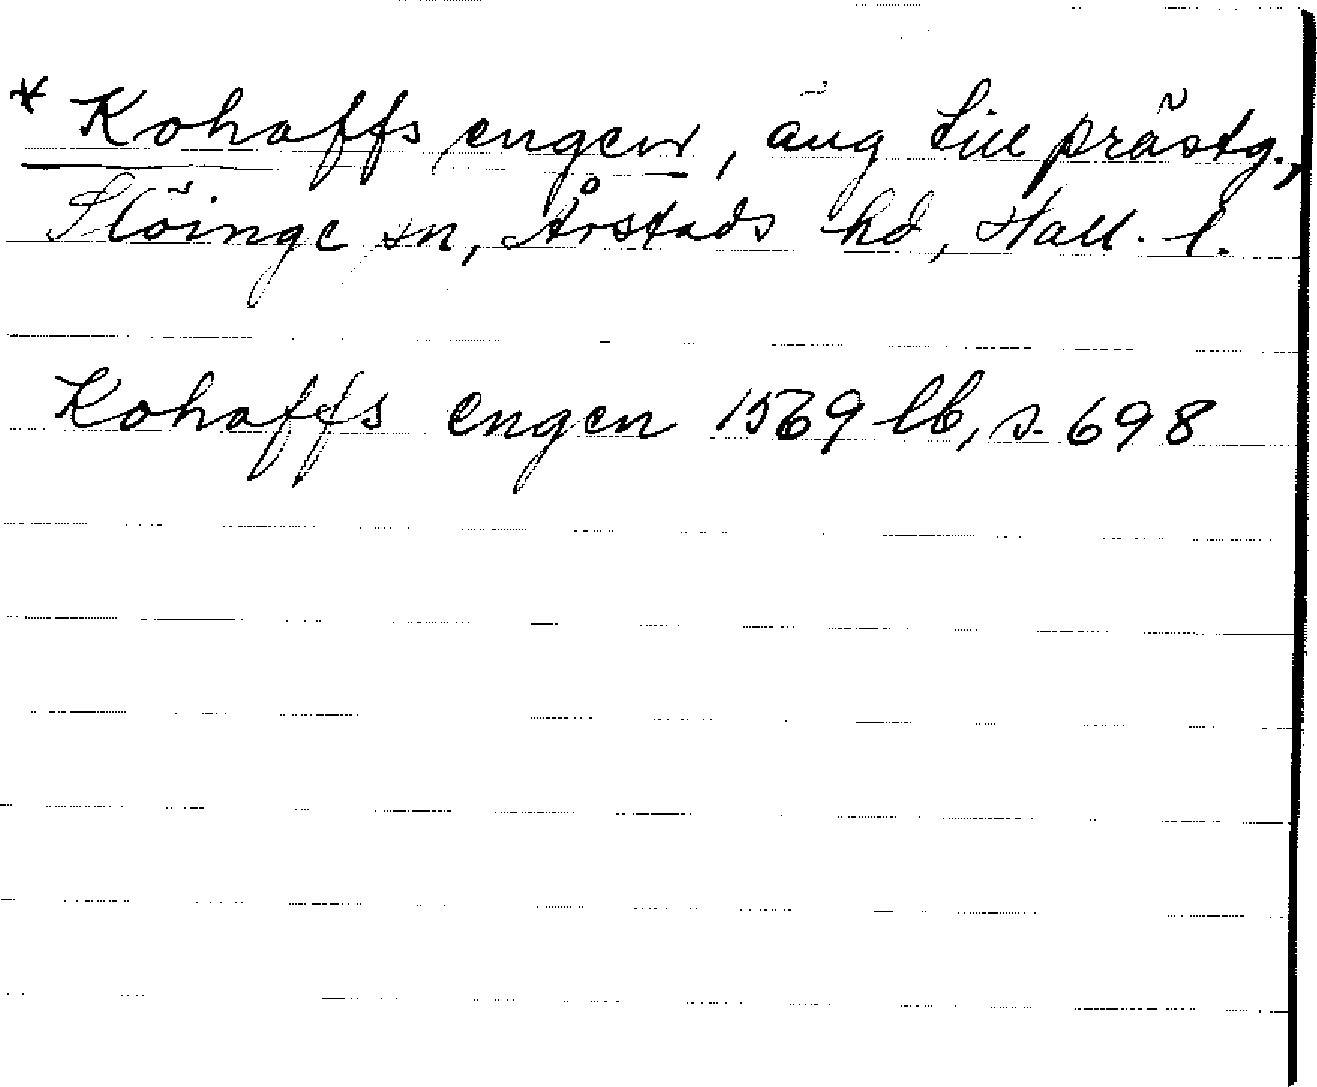 * Kohaffs engen, äng till prästg.,
Slöinge sn, Årstads hd, Hall. l.
Kohaffs engen 1569 lb, s. 698